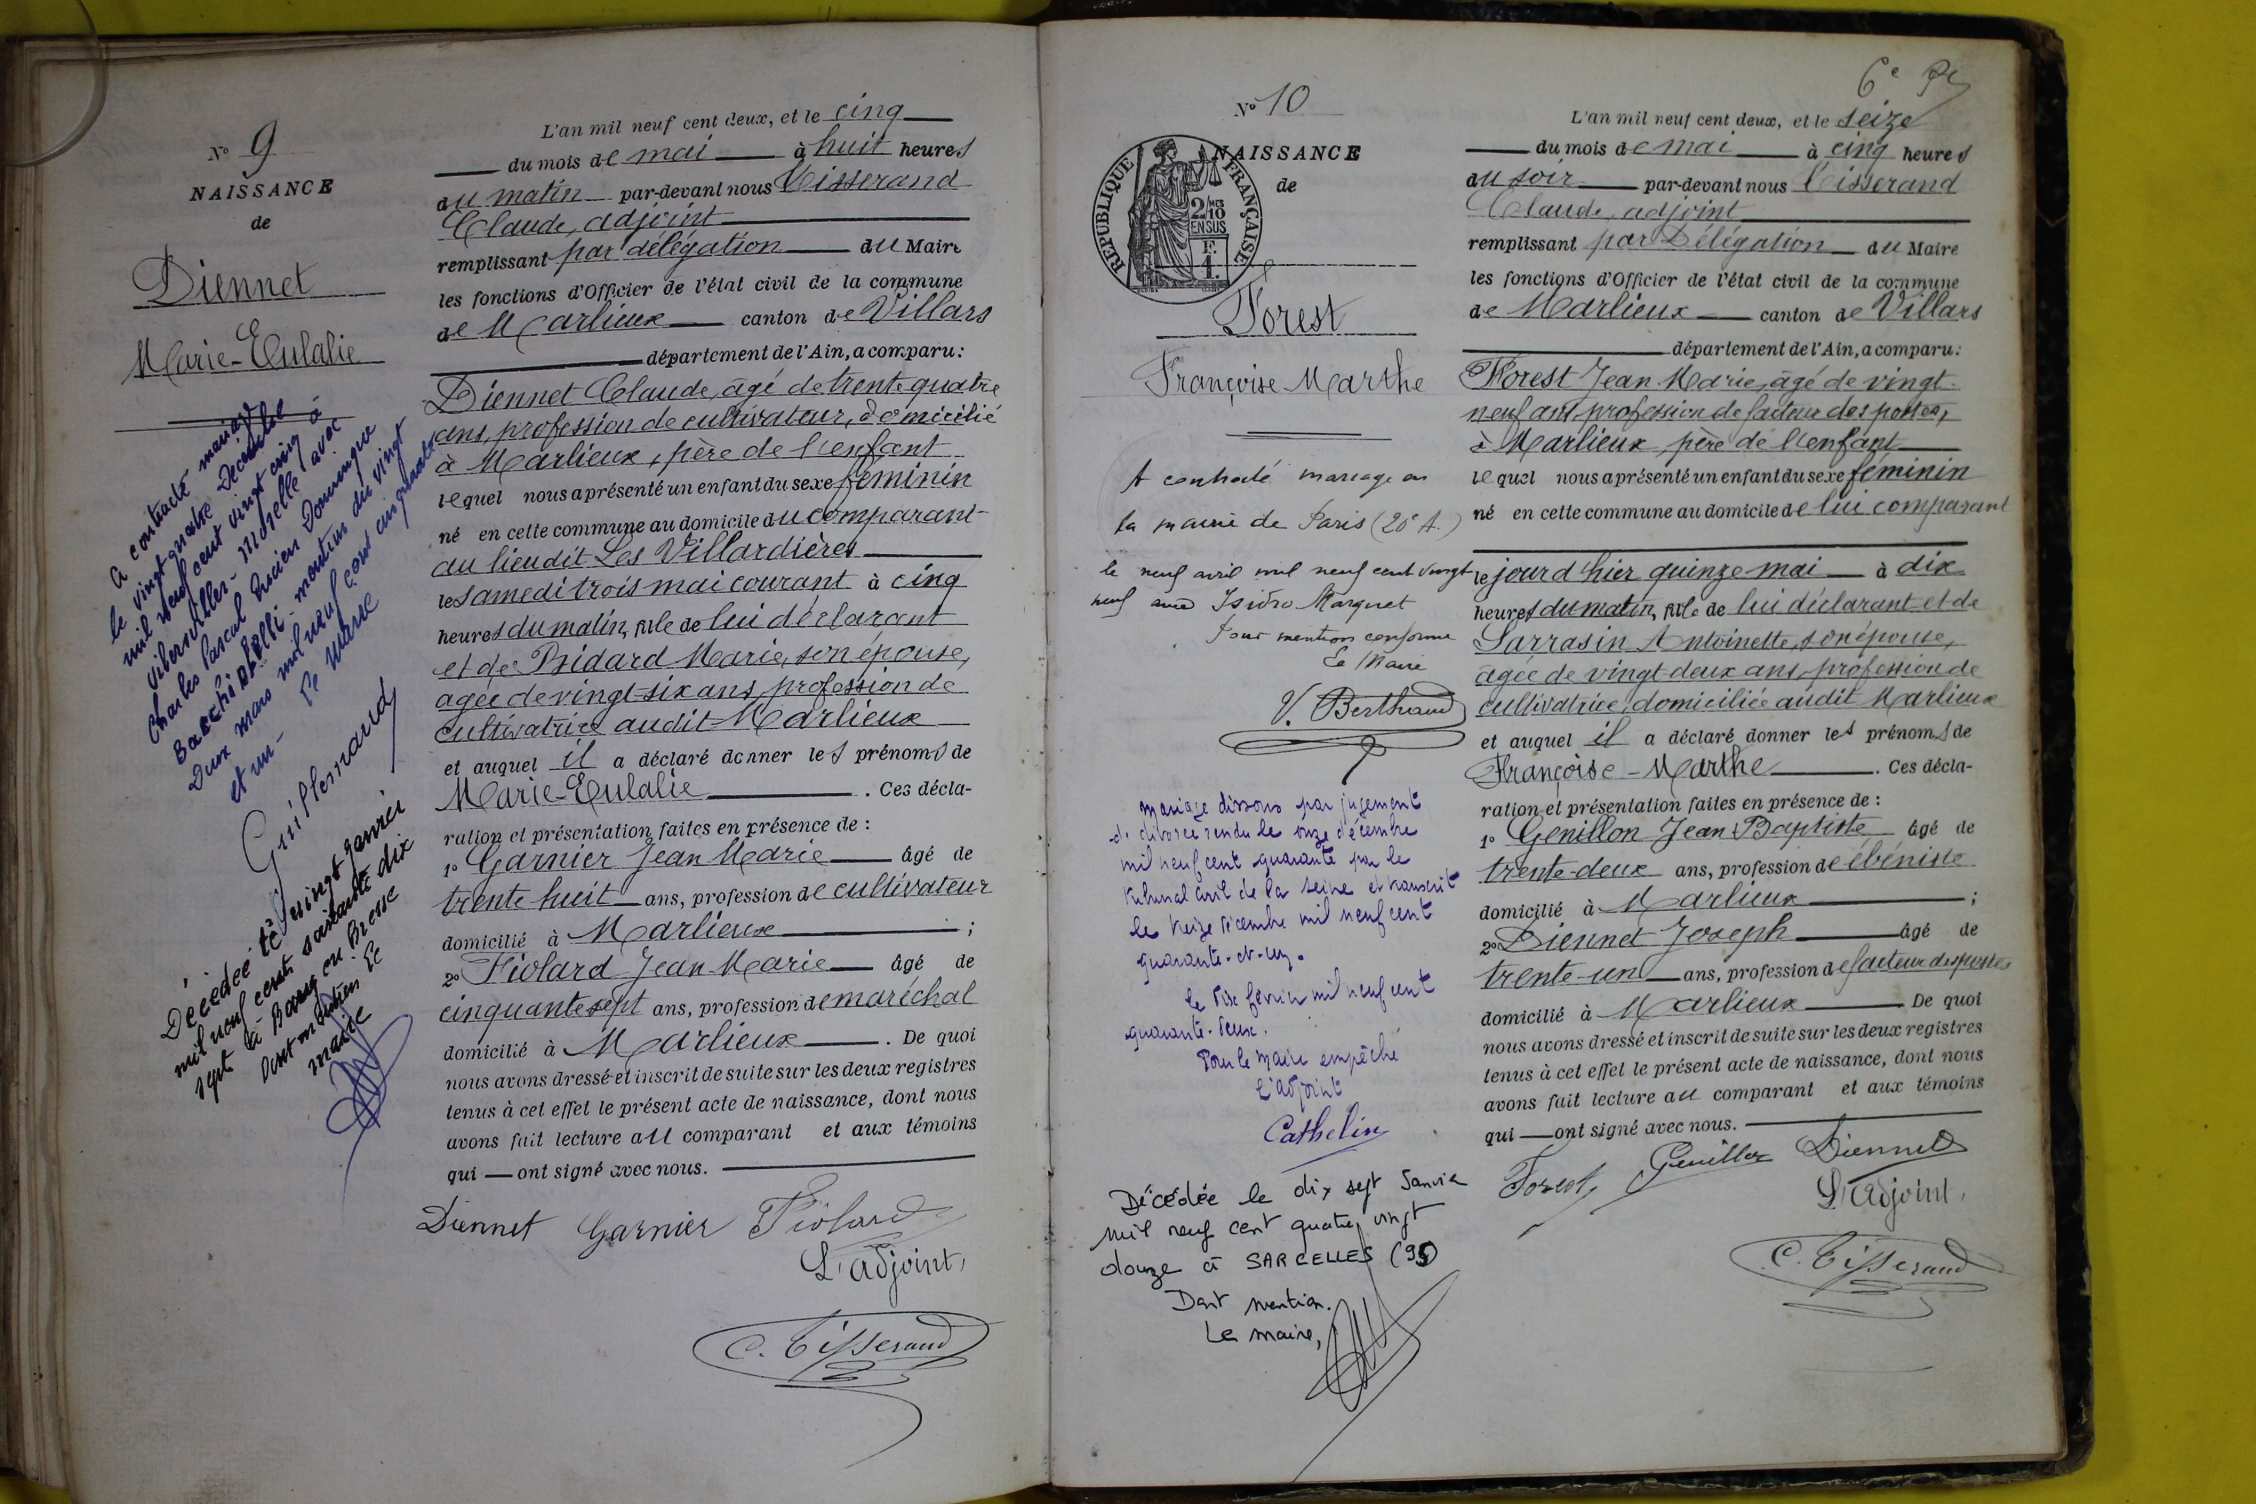 N° 9
NAISSANCE
de
Diennet
Marie-Eulalie
a contracté mariage
le vingt quatre Décembre
mil neuf cent vingt cinq à
Charles Pascal Lucien Dominique
mention du vingt
Deux mars mil neuf cent cinquante
et un -
Le Maire
Guillemaud
Décédée le vingt janvier
mil neuf cent soixante dix
sept à Bourg en Bresse
Dont mention Le
maire
L'an mil neuf cent deux, et le cinq
du mois de mai à huit heures
du matin par-devant nous Tisserand
Claude, adjoint
remplissant par délégation du Maire
les fonctions d'Officier de l'état civil de la commune
de Marlieux canton de Villars
département de l'Ain, a comparu:
Diennet Claude, âgé de trente quatre
ans, profession de cultivateur, domicilié
à Marlieux, père de l'enfant
lequel nous a présenté un enfant du sexe féminin
né en cette commune au domicile du comparant
au lieu dit Les Villardières
le samedi trois mai courant à cinq
heures du matin, fille de lui déclarant
et de Bridard Marie, son épouse,
agée de vingt-six ans, profession de
cultivatrice audit Marlieux
et auquel il a déclaré donner les prénoms de
Marie-Eulalie. Ces décla-
ration et présentation faites en présence de :
1° Garnier Jean Marie âgé de
trente huit ans, profession de cultivateur
domicilié à Marlieux ;
2° Piolard Jean-Marie âgé de
cinquante sept ans, profession de maréchal
domicilié à Marlieux. De quoi
nous avons dressé et inscrit de suite sur les deux registres
tenus à cet effet le présent acte de naissance, dont nous
avons fait lecture au comparant et aux témoins
qui — ont signé avec nous.
Diennet Garnier Piolard
L'adjoint,
C. Tisserand
6e
N° 10
NAISSANCE
de
RÉPUBLIQUE FRANÇAISE
2/10 MES
EN SUS
F.
1.
Forest
Françoise Marthe
A contracté mariage en
la mairie de Paris (20e A.)
le neuf avril mil neuf cent vingt
neuf avec Isidro Marquet
Pour mention conforme
Le Maire
V. Berthaud
mariage dissous par jugement
de divorce rendu le onze décembre
mil neuf cent quarante par le
tribunal civil de la Seine et transcrit
le treize Décembre mil neuf cent
quarante-et-un.
le dix février mil neuf cent
quarante-deux.
Pour le maire empêché
L'adjoint
Cathelin
Décédée le dix sept Janvier
mil neuf cent quatre vingt
douze à SARCELLES (95)
Dont mention.
Le maire,
L'an mil neuf cent deux, et le seize
du mois de mai à cinq heures
du soir par-devant nous Tisserand
Claude, adjoint
remplissant par Délégation du Maire
les fonctions d'Officier de l'état civil de la commune
de Marlieux canton de Villars
département de l'Ain, a comparu:
Forest Jean Marie, âgé de vingt-
neuf ans, profession de facteur des postes,
à Marlieux, père de l'enfant
lequel nous a présenté un enfant du sexe féminin
né en cette commune au domicile de lui comparant
le jour d'hier quinze mai à dix
heures du matin, fille de lui déclarant et de
Sarrasin Antoinette, son épouse,
agée de vingt deux ans, profession de
cultivatrice, domiciliée audit Marlieux
et auquel il a déclaré donner les prénoms de
Françoise-Marthe. Ces décla-
ration et présentation faites en présence de :
1° Genillon Jean Baptiste âgé de
trente-deux ans, profession de ébéniste
domicilié à Marlieux ;
2° Diennet Joseph âgé de
trente-un ans, profession de facteur des postes
domicilié à Marlieux De quoi
nous avons dressé et inscrit de suite sur les deux registres
tenus à cet effet le présent acte de naissance, dont nous
avons fait lecture au comparant et aux témoins
qui — ont signé avec nous.
Forest Genillon Diennet
L'adjoint,
C. Tisserand